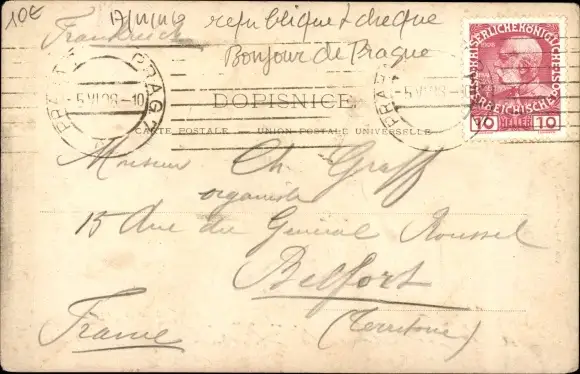 10€
republique tcheque
Frankreich
Bonjour de Prague
PRAG
5.VI.08-10
PRAG
5.VI.08
KAISERLICHEKÖNIGLICHE ÖSTERREICHISCHE POST
10 HELLER 10
DOPISNICE
CARTE POSTALE – UNION POSTALE UNIVERSELLE
Monsieur Ch. Graff
organiste
15 Rue du Général Roussel
Belfort
(Territoire)
France